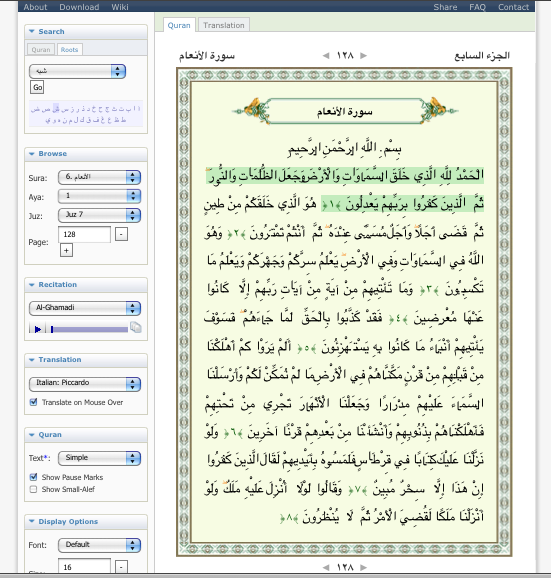 About Download Wiki Share FAQ Contact
Search
Quran Roots
شبه
Go
ا ب ت ث ج ح خ د ذ ر ز س ش ص ض
ط ظ ع غ ف ق ك ل م ن ه و ي
Browse
Sura: 6. الأنعام
Aya: 1
Juz: Juz 7
Page: 128 -
+
Recitation
Al-Ghamadi
Translation
Italian: Piccardo
Translate on Mouse Over
Quran
Text*: Simple
Show Pause Marks
Show Small-Alef
Display Options
Font: Default
Size: 16 -
Quran Translation
الجزء السابع ١٢٨ سورة الأنعام
سورة الأنعام
بِسْمِ اللَّهِ الرَّحْمَنِ الرَّحِيمِ
الْحَمْدُ لِلَّهِ الَّذِي خَلَقَ السَّمَاوَاتِ وَالْأَرْضَ وَجَعَلَ الظُّلُمَاتِ وَالنُّورَ ۖ
ثُمَّ الَّذِينَ كَفَرُوا بِرَبِّهِمْ يَعْدِلُونَ ﴿١﴾ هُوَ الَّذِي خَلَقَكُمْ مِنْ طِينٍ
ثُمَّ قَضَى أَجَلًا ۖ وَأَجَلٌ مُسَمًّى عِنْدَهُ ۖ ثُمَّ أَنْتُمْ تَمْتَرُونَ ﴿٢﴾ وَهُوَ
اللَّهُ فِي السَّمَاوَاتِ وَفِي الْأَرْضِ ۖ يَعْلَمُ سِرَّكُمْ وَجَهْرَكُمْ وَيَعْلَمُ مَا
تَكْسِبُونَ ﴿٣﴾ وَمَا تَأْتِيهِمْ مِنْ آيَةٍ مِنْ آيَاتِ رَبِّهِمْ إِلَّا كَانُوا
عَنْهَا مُعْرِضِينَ ﴿٤﴾ فَقَدْ كَذَّبُوا بِالْحَقِّ لَمَّا جَاءَهُمْ ۖ فَسَوْفَ
يَأْتِيهِمْ أَنْبَاءُ مَا كَانُوا بِهِ يَسْتَهْزِئُونَ ﴿٥﴾ أَلَمْ يَرَوْا كَمْ أَهْلَكْنَا
مِنْ قَبْلِهِمْ مِنْ قَرْنٍ مَكَّنَّاهُمْ فِي الْأَرْضِ مَا لَمْ نُمَكِّنْ لَكُمْ وَأَرْسَلْنَا
السَّمَاءَ عَلَيْهِمْ مِدْرَارًا وَجَعَلْنَا الْأَنْهَارَ تَجْرِي مِنْ تَحْتِهِمْ
فَأَهْلَكْنَاهُمْ بِذُنُوبِهِمْ وَأَنْشَأْنَا مِنْ بَعْدِهِمْ قَرْنًا آخَرِينَ ﴿٦﴾ وَلَوْ
نَزَّلْنَا عَلَيْكَ كِتَابًا فِي قِرْطَاسٍ فَلَمَسُوهُ بِأَيْدِيهِمْ لَقَالَ الَّذِينَ كَفَرُوا
إِنْ هَذَا إِلَّا سِحْرٌ مُبِينٌ ﴿٧﴾ وَقَالُوا لَوْلَا أُنْزِلَ عَلَيْهِ مَلَكٌ ۖ وَلَوْ
أَنْزَلْنَا مَلَكًا لَقُضِيَ الْأَمْرُ ثُمَّ لَا يُنْظَرُونَ ﴿٨﴾
١٢٨